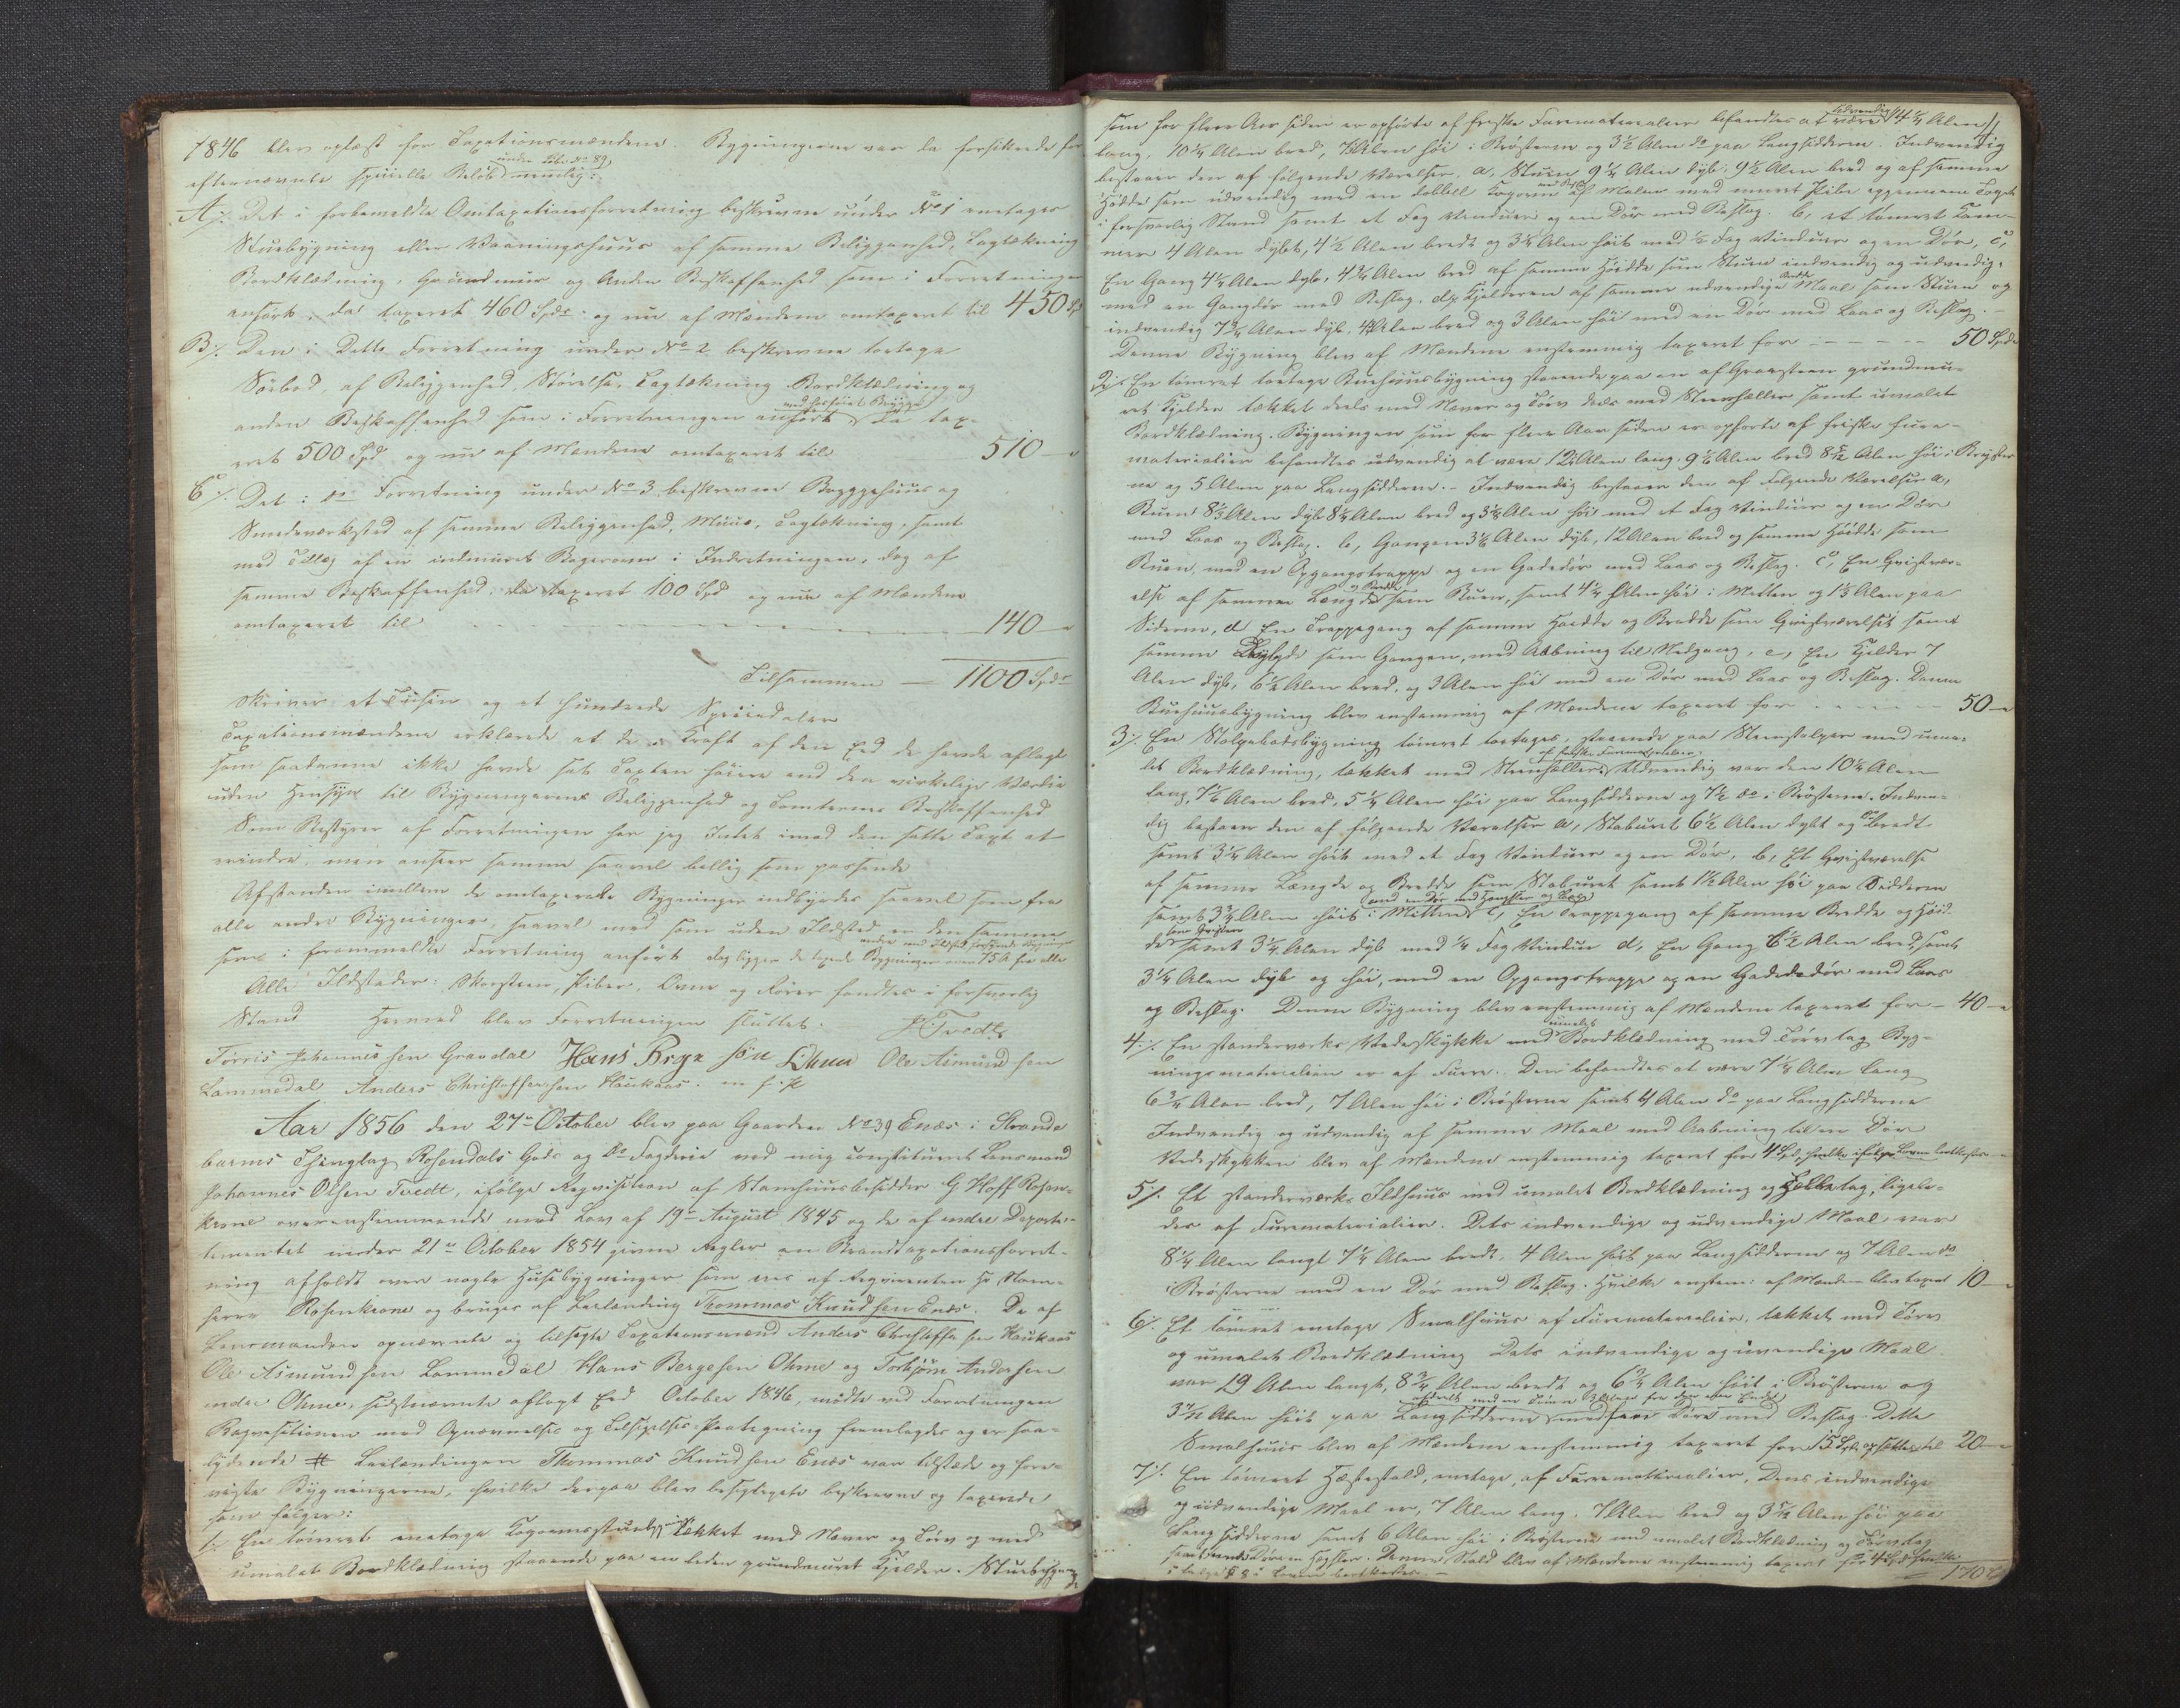 1846 blev oplæst for Taxationsmændene. Bygningerne var da forsikrede for
efternævnte specielle Beløb under Litr. No 89 nemlig:
A/. Det i forbemeldte Omtaxationsforretning beskrevne under No 1 eenetages
Stuebygning eller Vaaningshuus af samme Beliggenhed, Tagtækning
Bordklædning, Grundmuur og Anden Beskaffenhed som i Forretningen
anført, da taxeret 460 Spdr. og nu af Mændene omtaxeret til 450 Spd
B/. Den i Dette Forretning under No 2 beskrevne toetages
Søebod, af Beliggenhed, Størelse, Tagtækning Bordklædning og
anden Beskaffenhed som i Forretningen anført med forsvarlig Brygge da tax-
eret 500 Spd og nu af Mændene omtaxeret til 510 —
C/. Det i do Forretning under No 3 beskrevne Bryggehuus og
Smedeværksted af samme Beliggenhed, Muur, Tagtækning, samt
med Tillæg af en indmuret Bagerovn i Indretningen, dog af
samme Beskaffenhed, da taxeret 100 Spd og nu af Mændene
omtaxeret til 140 —
Tilsammen — 1100 Spdr
Skriver et Tusin og et hundrede Speciedaler
Taxationsmændene erklærede at de i Kraft af den Eed de havde aflagt
som saadanne ikke havde sat Taxten høiere end den virkelige Værdie
uden Hensyn til Bygningernes Beliggenhed og Tomternes Beskaffenhed
Som Bestyrer af Forretningen har jeg Intet imod den satte Taxt at
erindre, men anseer samme saavel billig som passende
Afstanden imellem de omtaxerede Bygninger indbyrdes saavel som fra
alle andre Bygninger, saavel med som uden Ildsted er den samme
som i forommeldte Forretning anført dog ligger de taxerede Bygninger over 75 Al fra alle andre med Ildsted forsynede Bygninger
Alle Ildsteder: Skorsteen, Piber, Ovne og Rører fandtes i forsvarlig
Stand Hermed blev Forretningen sluttet. J. Tvedt
Tørris Johannissen Gravdal Hans Brge sen Øhme Ole Asmund sen
Lammedal Anders Christoffersen Haukaas. m. f. P.
Aar 1856 den 27de October blev paa Gaarden No 39 Enæs i Strande
barms Thinglag Rosendals Gods og do Fogderie ved mig constitueret Lensmand
Johannes Olsen Tvedt, ifølge Reqvisition af Stamhuusbesidder G Hoff Rosen-
krone overenstemmende med Lov af 19de August 1845 og de af indre Departe-
tementet under 21de October 1854 givne Regler en Brandtaxationsforret-
ning afholdt over nogle Huusbygninger som ees af Reqvirenten Hr Stam-
herre Rosenkrone og bruges af Leilænding Thommas Knudsen Enæs. De af
Lensmanden opnævnte og tilsagte Taxationsmænd Anders Christoffersen Haukaas
Ole Asmundsen Lammedal Hans Bergesen Ohme og Torbjørn Andersen
indre Ohme, sidstnævnte aflagt Eed October 1846, mødte ved Forretningen
Reqvisitionen med Opnævnelses og Tilsigelses Paategning fremlagdes og er saa-
lydende # Leilændingen Thommas Knudsen Enæs var tilstæde og fore-
viste Bygningerne, hvilke derpaa blev besigtigede beskrevne og taxerede
som følger:
1/. En tømret eenetage Rogovnsstuebygning tækket med Næver og Torv og med
umalet Bordklædning staaende paa en liden grundmuret Kjelder. Stuebygningen
som for flere Aar siden er opførte af friske Furematerialier befandtes at være udvendig 14 ½ Alen
lang, 10 ¼ Alen bred, 7 Alen høi i Brøsterne og 3 ½ Alen do paa Langsidderne. Indvendig
bestaaer den af følgende Værelser, a, Stuen 9 ¼ Alen dyb, 9 ½ Alen bred og af samme
Høide som udvendig med en dobbel Kagovn med muret Pibe igjennem Taget
i forsvarlig Stand samt et Fag Vinduer og en Dør med Beslag. b, et tømret Kam-
mer 4 Alen dybt, 4 ½ Alen bredt og 3 ½ Alen høit med ½ Fag Vinduer og en Dør, c,
En Gang 4 ½ Alen dyb, 4 ¾ Alen bred af samme Høidde som Stuen indvendig og udvendig,
med en Gangdør med Beslag. d, Kjelderen af samme udvendige Maal som Stuen og
indvendig 7 ¾ Alen dyb, 4 Alen bred og 3 Alen høi med en Dør med Laas og Beslag. —
Denne Bygning blev af Mændene enstemmig taxeret for — 50 Spd
2/. En tømret toetages Buehuusbygning staaende paa en af Graasteen grundmu-
ret Kjelder tækket deels med Næver og Torv deels med Steenheller samt umalet
Bordklædning. Bygningen som for flere Aar siden er opførte af friske fure-
materialier befandtes udvendig at være 12 Alen lang, 9 ½ Alen bred 8 ½ Alen høi i Brøster-
ne og 5 Alen paa Langsidderne. — Indvendig bestaaer den af Følgende Værelser a,
Buen 8 ½ Alen dyb 8 ½ Alen bred og 3 ½ Alen høi med et Fag Vinduer og en Dør
med Laas og Beslag. b, Gangen 3 ½ Alen dyb, 12 Alen bred og samme Høidde som
Buen, med en Opgangstrappe og en Gadedør med Laas og Beslag. c, En Qvistvær-
else af samme Længde og Bredde som Buen, samt 4 ½ Alen høi i Mitten og 1 ½ Alen paa
Siderne, d En Trappegang af samme Høidde og Bredde som Qvistværelset samt
samme Dybde som Gangen, med Aabning til Nedgang, e, En Kjelder 7
Alen dyb, 6 ½ Alen bred, og 3 Alen høi med en Dør med Laas og Beslag. Denne
Buehuusbygning blev enstemmig af Mændene taxeret for 50 —
3/. En Stolpebodsbygning tømret toetages, staaende paa Steenstolper med uma-
let Bordklædning, tækket med Steenheller, af friske Furematerialier. Udvendig var den 10 ½ Alen
lang, 7 ½ Alen bred, 5 ¼ Alen høi paa Langsidderne og 7 ½ do i Brøsterne. Indven-
dig bestaaer den af følgende Værelser a, Staburet 6 ½ Alen dybt og bredt
samt 3 ¼ Alen høit med et Fag Vinduer og en Dør, b, Et Qvistværelse
af samme Længde og Bredde som Staburet samt 1 ½ Alen høi paa Sidderne
samt 3 ¾ Alen høit i Mitten, med en Dør med Hængsler og Laas c, En Trappegang af samme Bredde og Høid-
de som Qvisten samt 3 ¼ Alen dyb med ¼ Fag Vindue d, En Gang 6 ½ Alen bred, samt
3 ¼ Alen dyb og høi, med en Opgangstrappe og en Gadedør med Laas
og Beslag. Denne Bygning blev enstemmig af Mændene taxeret for — 40 —
4/. En standerværks Vedeskykke med umalet Bordklædning med Torvtag Byg-
ningsmaterialier er af Furre. Den befandtes at være 7 ¼ Alen lang
6 ¾ Alen bred, 7 Alen høi i Brøsterne samt 4 Alen do paa Langsidderne
Indvendig og udvendig af samme Maal med Aabning til en Dør
Vedeskykken blev af Mændene enstemmig taxeret for 4 Spd, hvilke ifølge Loven bortkastes —
5/. Et standerværks Ildhuus med umalet Bordklædning og Helletag, ligele-
des af Furematerialier. Dets indvendige og udvendige Maal var
8 ¼ Alen langt 7 ¼ Alen bredt, 4 Alen høit paa Langsidderne og 7 Alen do
i Brøsterne med en Dør med Beslag. Hvilke enstem: af Mændene blev taxeret 10 —
6/. Et tømret eenetage Smalhuus af Furematerialier, tækket med Torv
og umalet Bordklædning Dets indvendige og udvendige Maal
var 19 Alen langt, 8 ¾ Alen bredt og 6 ¾ Alen høit i Brøsterne og
3 ½ Alen høit paa Langsidderne afdeelt med en Tømmer 3 Alen fra den ene Ende med tvee Døre med Beslag. Dette
Smalhuus blev af Mændene enstemmig taxeret for 15 Spd, opsættes til 20 —
7/. En tømret Hestestald, eenetage, af Furematerialier, Dens indvendige
og udvendige Maal er, 7 Alen lang, 7 Alen bred og 3 ½ Alen høi paa
Langsidderne samt 6 Alen høi i Brøsterne med umalet Bordklædning og Torvtag
samt Døren Hængsler. Denne Stald blev af Mændene enstemmig taxeret for 4 Spd hvilke
ifølge § 8 i Loven bortkastes. — 170